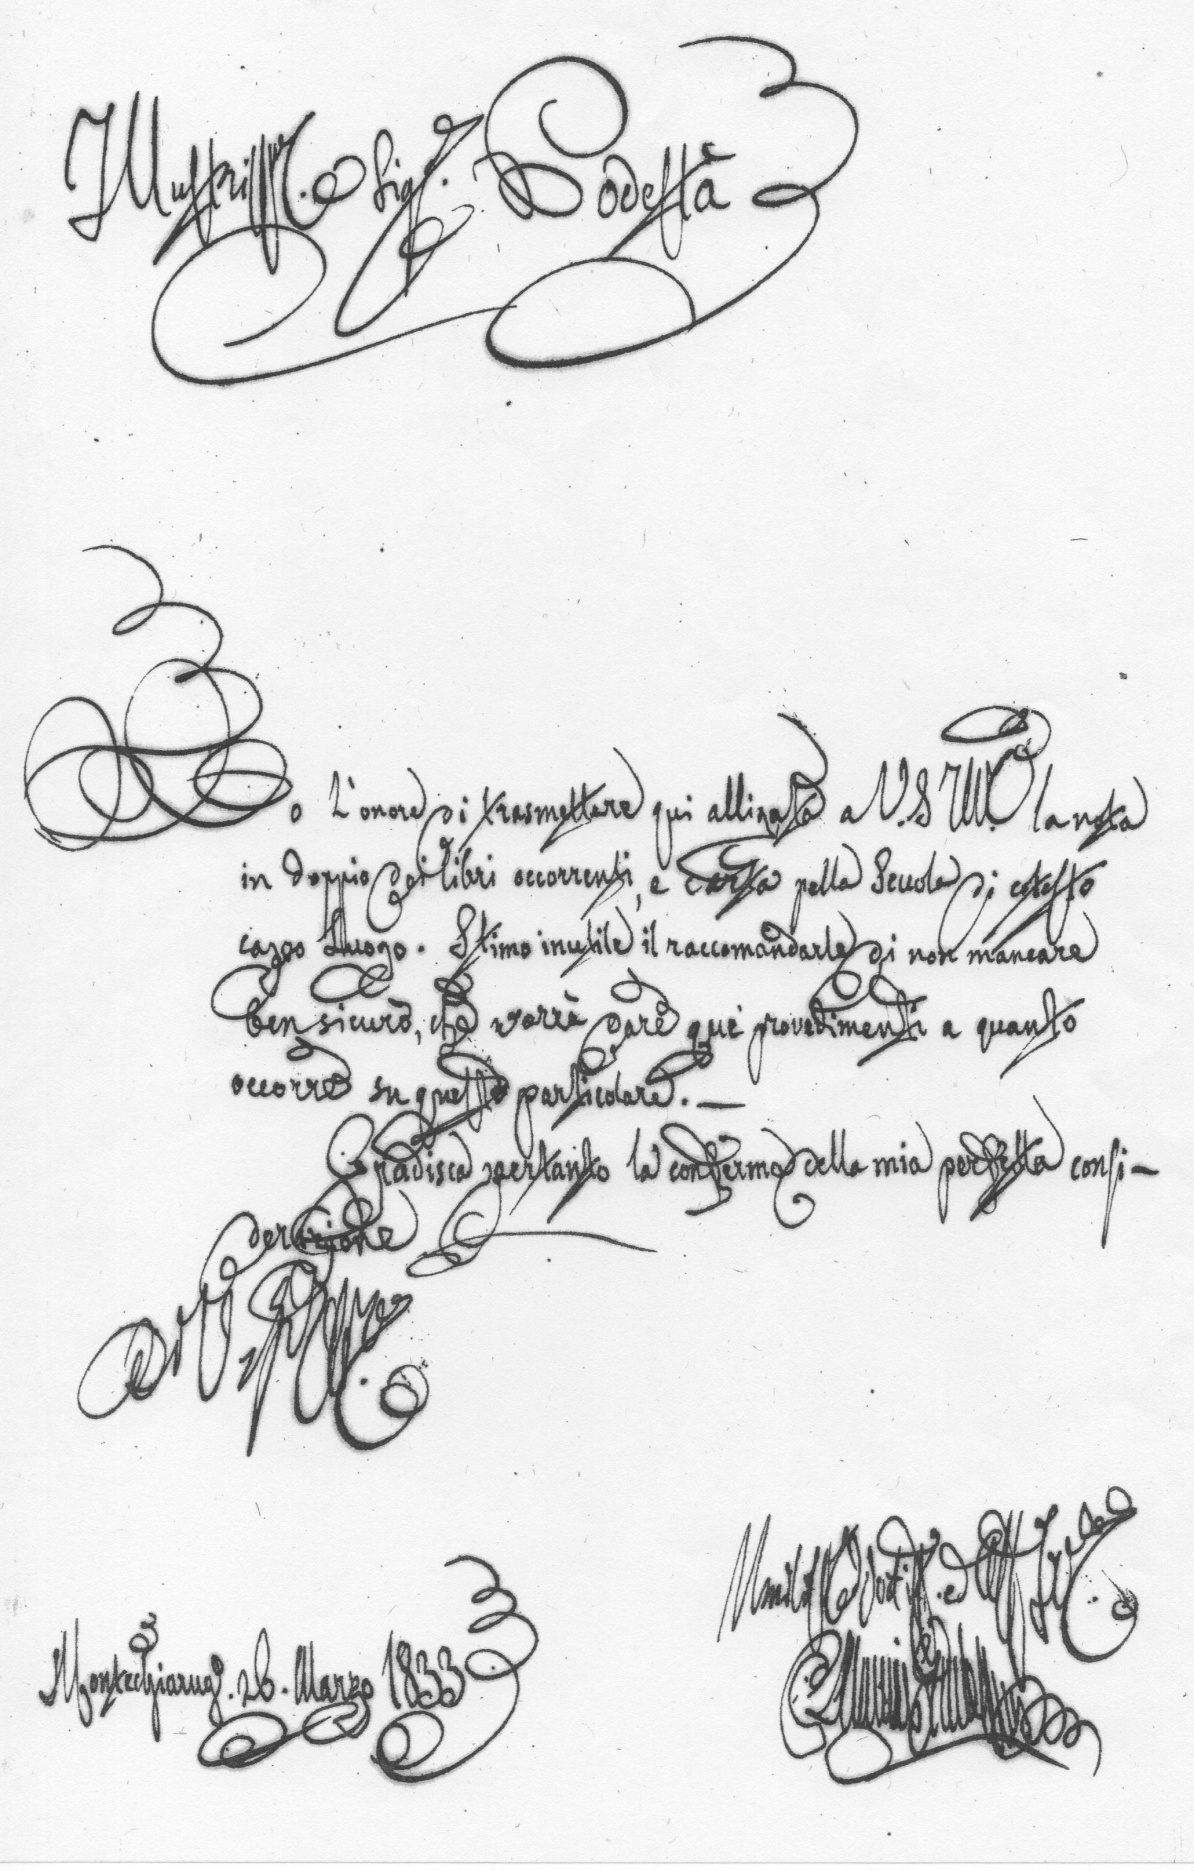 Illustriss.o Sig.r Podestà
Ho l'onore di trasmettere qui alligata a V. S. Ill.ma la nota
in doppio dei libri occorrenti, e carta pella Scuola di cotesto
capo Luogo. Stimo inutile il raccomandarle di non mancare
ben sicuro, che vorrà dare que' provedimenti a quanto
occorre su questo particolare. —
Gradisca pertanto la conferma della mia perfetta consi-
derazione
Di V. S. Ill.ma
Umilis. Devotis. ed
Montechiarug.o 26. Marzo 1833